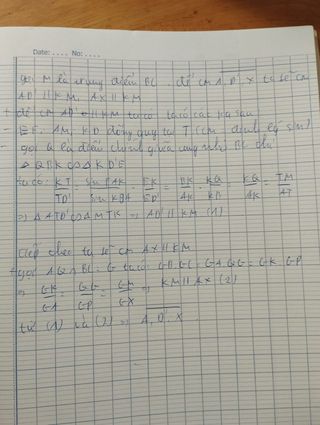 Date: .... No: ....
gọi M là trung điểm BC. để cm A, D', X ta sẽ cm
AD' // KM, AX // KM
+ để cm AD' // KM ta có các kq sau
- EF, AM, KD đồng quy tại T (cm định lý sin)
- gọi Q là điểm chính giữa cung BC thì
Δ QBK ∽ Δ KD'E
ta có: KT/TD' = sin BAK/sin KBA · EK/ED' = BK/AK · KQ/KB = KQ/AK = TM/AT
=> Δ ATD' ∽ Δ MTK => AD' // KM (1)
Tiếp theo ta sẽ cm AX // KM
+ gọi AQ ∩ BC = G ta có: GB.GC = GA.QG = GK.GP
=> GK/GA = GG/GP = GM/GX => KM // AX (2)
từ (1) và (2) => A, D', X